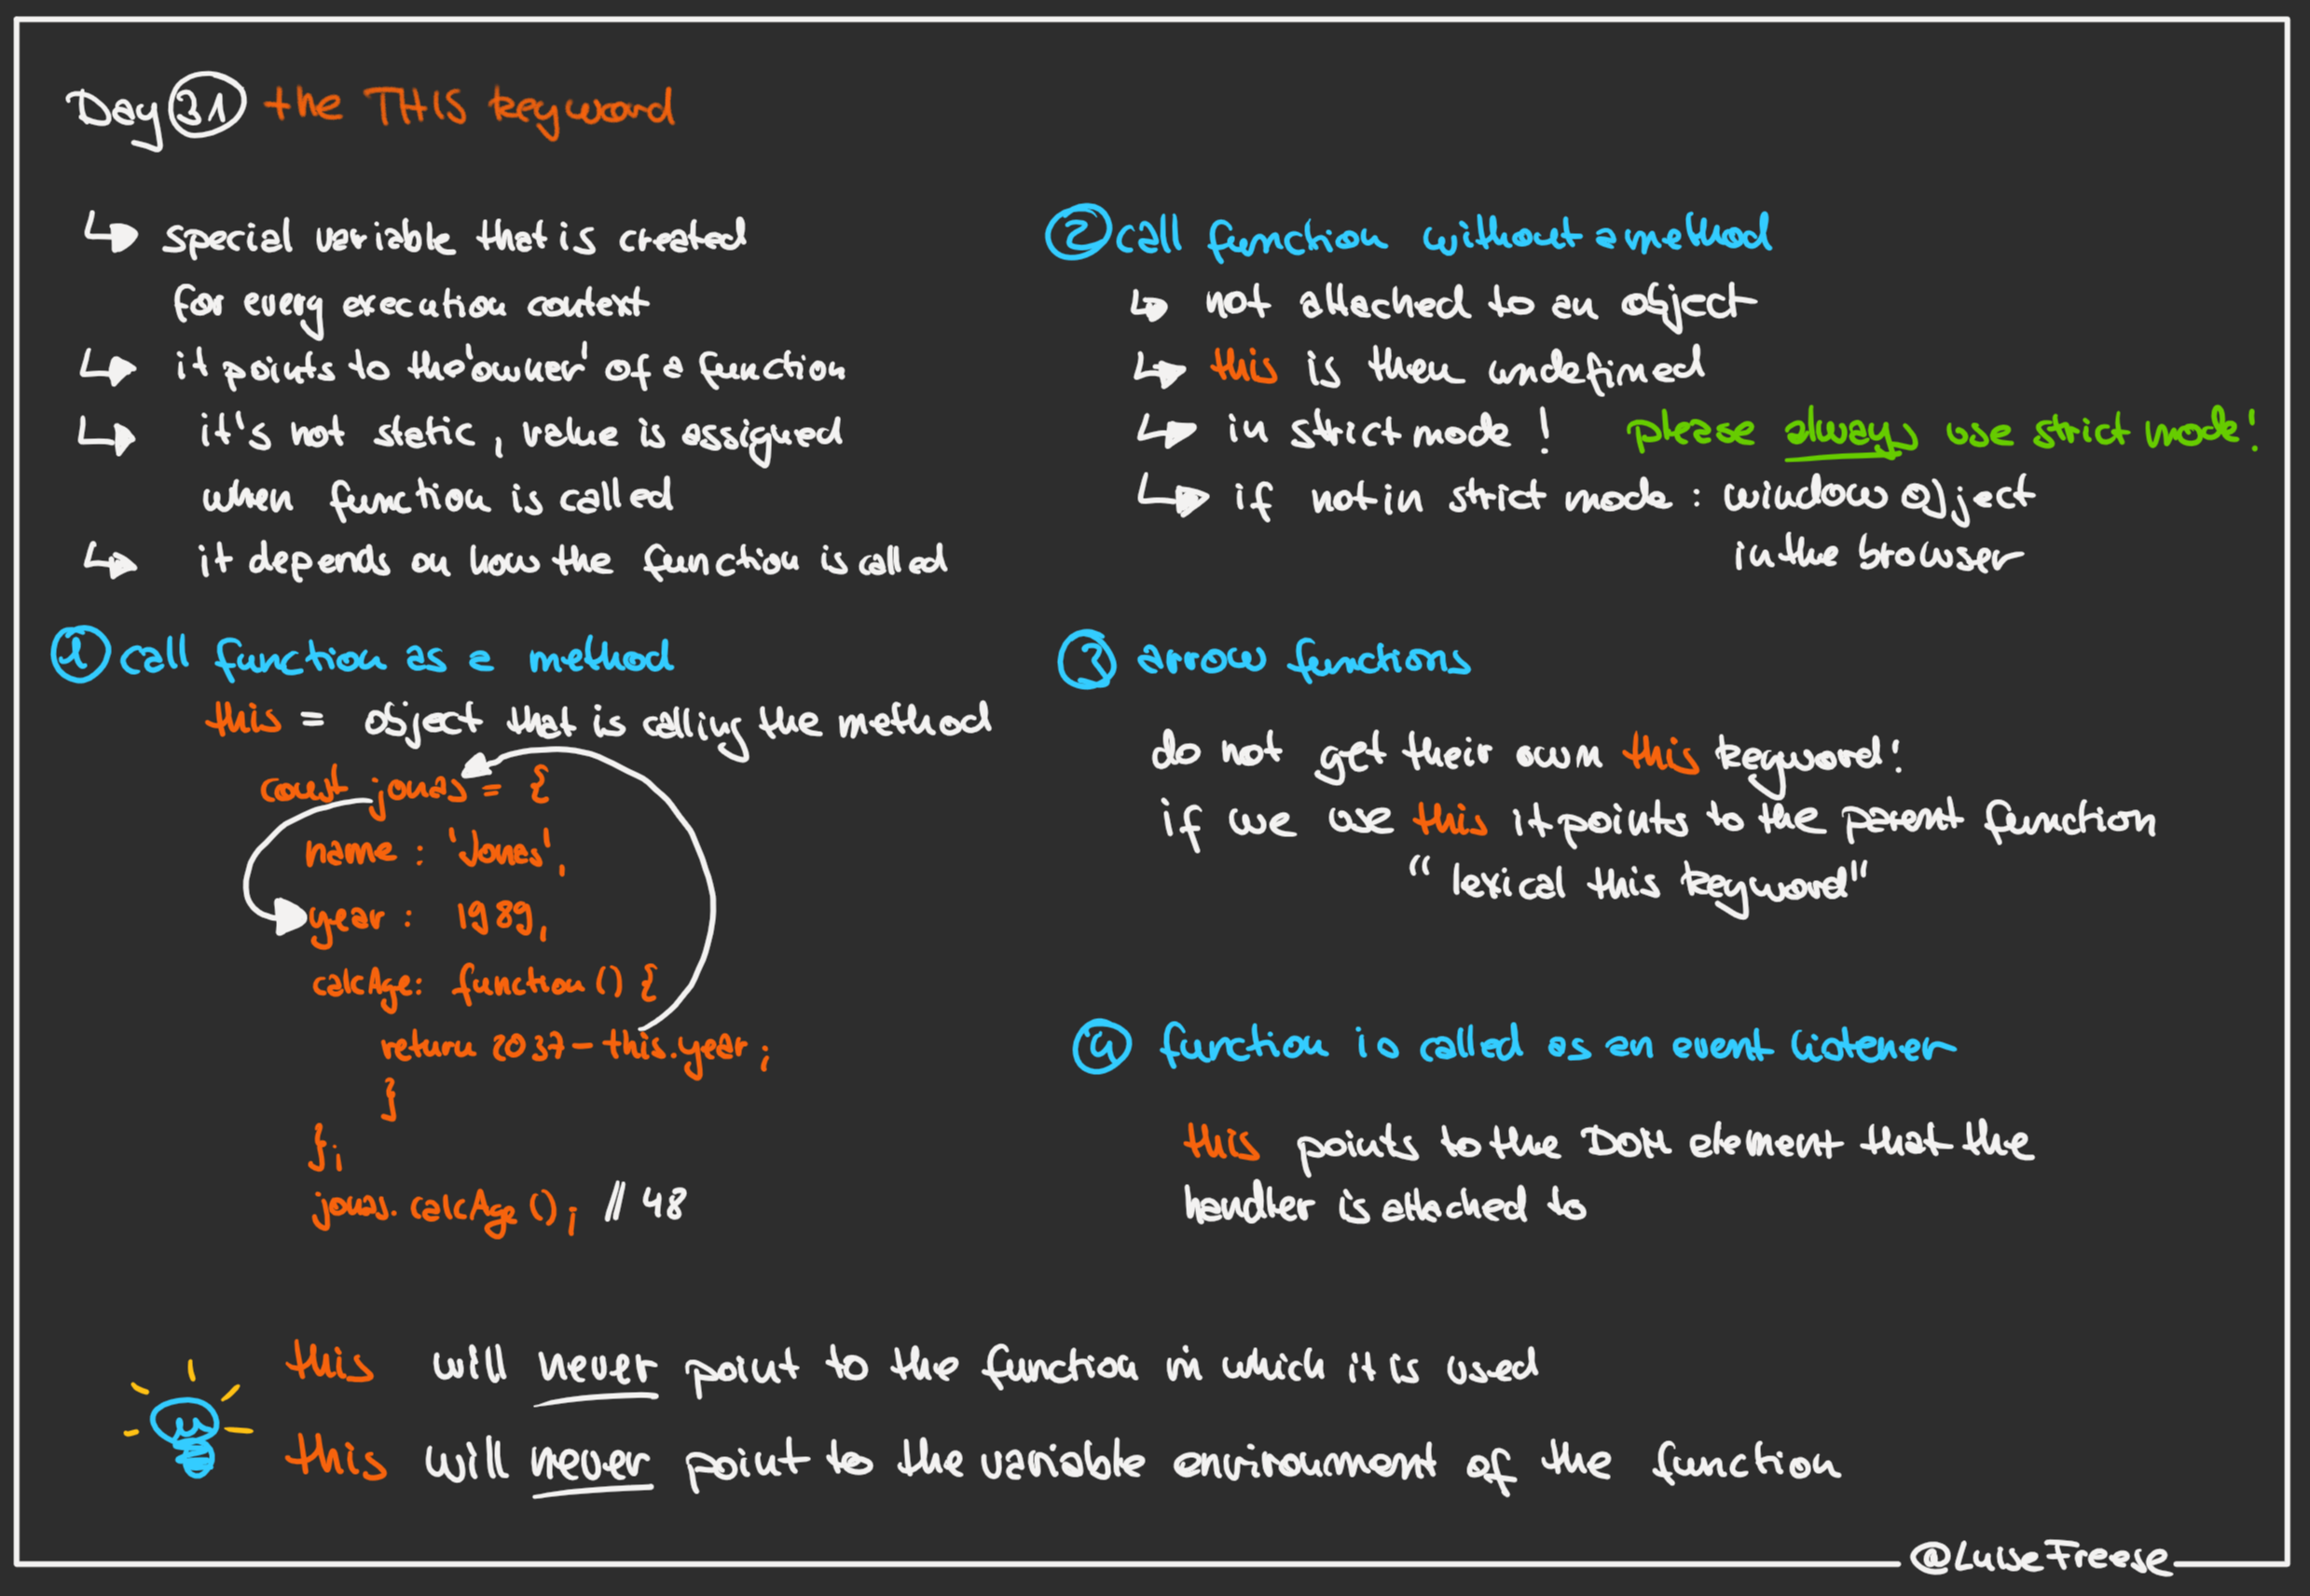 Day 31 the THIS keyword
special variable that is created
for every execution context
it points to the 'owner' of a function
it's not static, value is assigned
when function is called
it depends on how the function is called
1 call function as a method
this = object that is calling the method
const jonas = {
name : 'Jonas',
year : 1989,
calcAge: function () {
return 2037 - this.year;
}
};
jonas.calcAge(); // 48
2 call function without a method
not attached to an object
this is then undefined
in strict mode ! please always use strict mode!
if not in strict mode : window object
in the browser
3 arrow functions
do not get their own this keyword!
if we use this it points to the parent function
"lexical this keyword"
4 function is called as an event listener
this points to the DOM element that the
handler is attached to
this will never point to the function in which it is used
this will never point to the variable environment of the function
@LuiseFreese